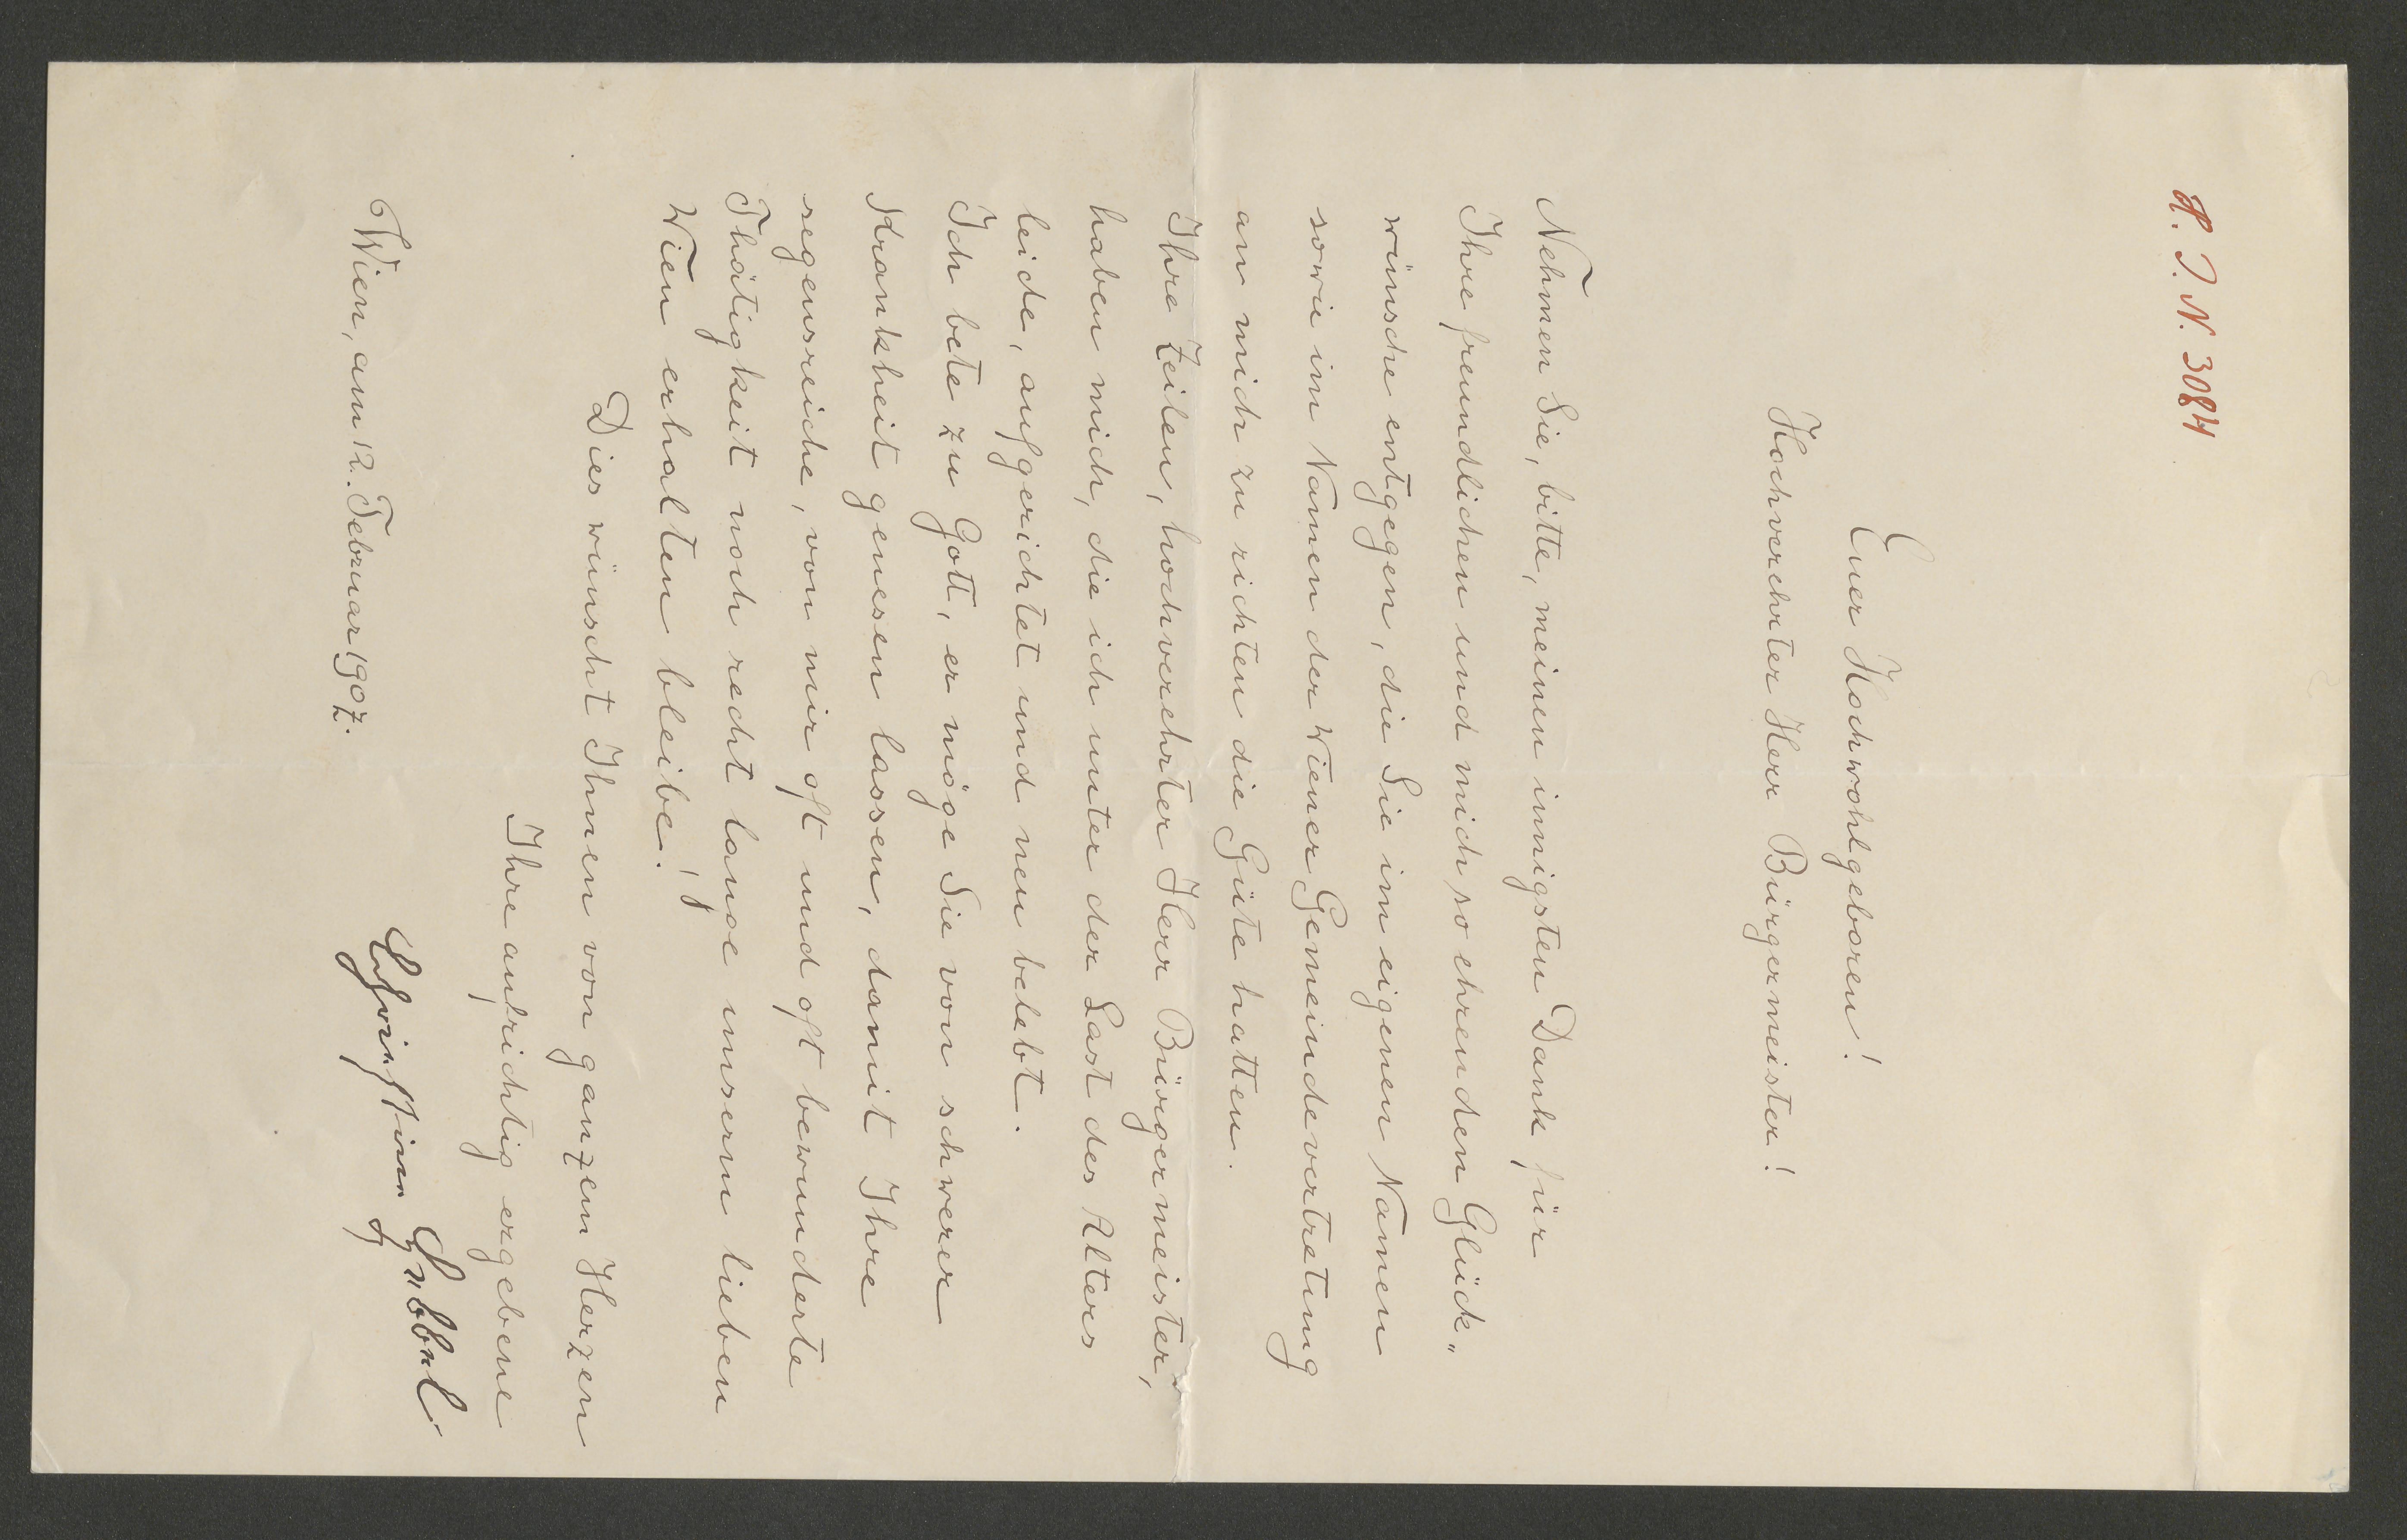 H. I. N. 3084
Euer Hochwohlgeboren!
Hochverehrter Herr Bürgermeister!
Nehmen Sie, bitte, meinen innigsten Dank für
Ihre freundlichen und mich so ehrenden Glück„
wünsche entgegen, die Sie im eigenen Namen
sowie im Namen der Wiener Gemeindevertretung
an mich zu richten die Güte hatten.
Ihre Zeilen, hochverehrter Herr Bürgermeister,
haben mich, die ich unter der Last des Alters
leide, aufgerichtet und neu belebt.
Ich bete zu Gott, er möge Sie von schwerer
Krankheit genesen lassen, damit Ihre
segensreiche, von mir oft und oft bewunderte
Thätigkeit noch recht lange unserm lieben
Wien erhalten bleibe!
Dies wünscht Ihnen von ganzem Herzen
Ihre aufrichtig ergebene
Christine Hebbel
Wien, am 12. Februar 1907.